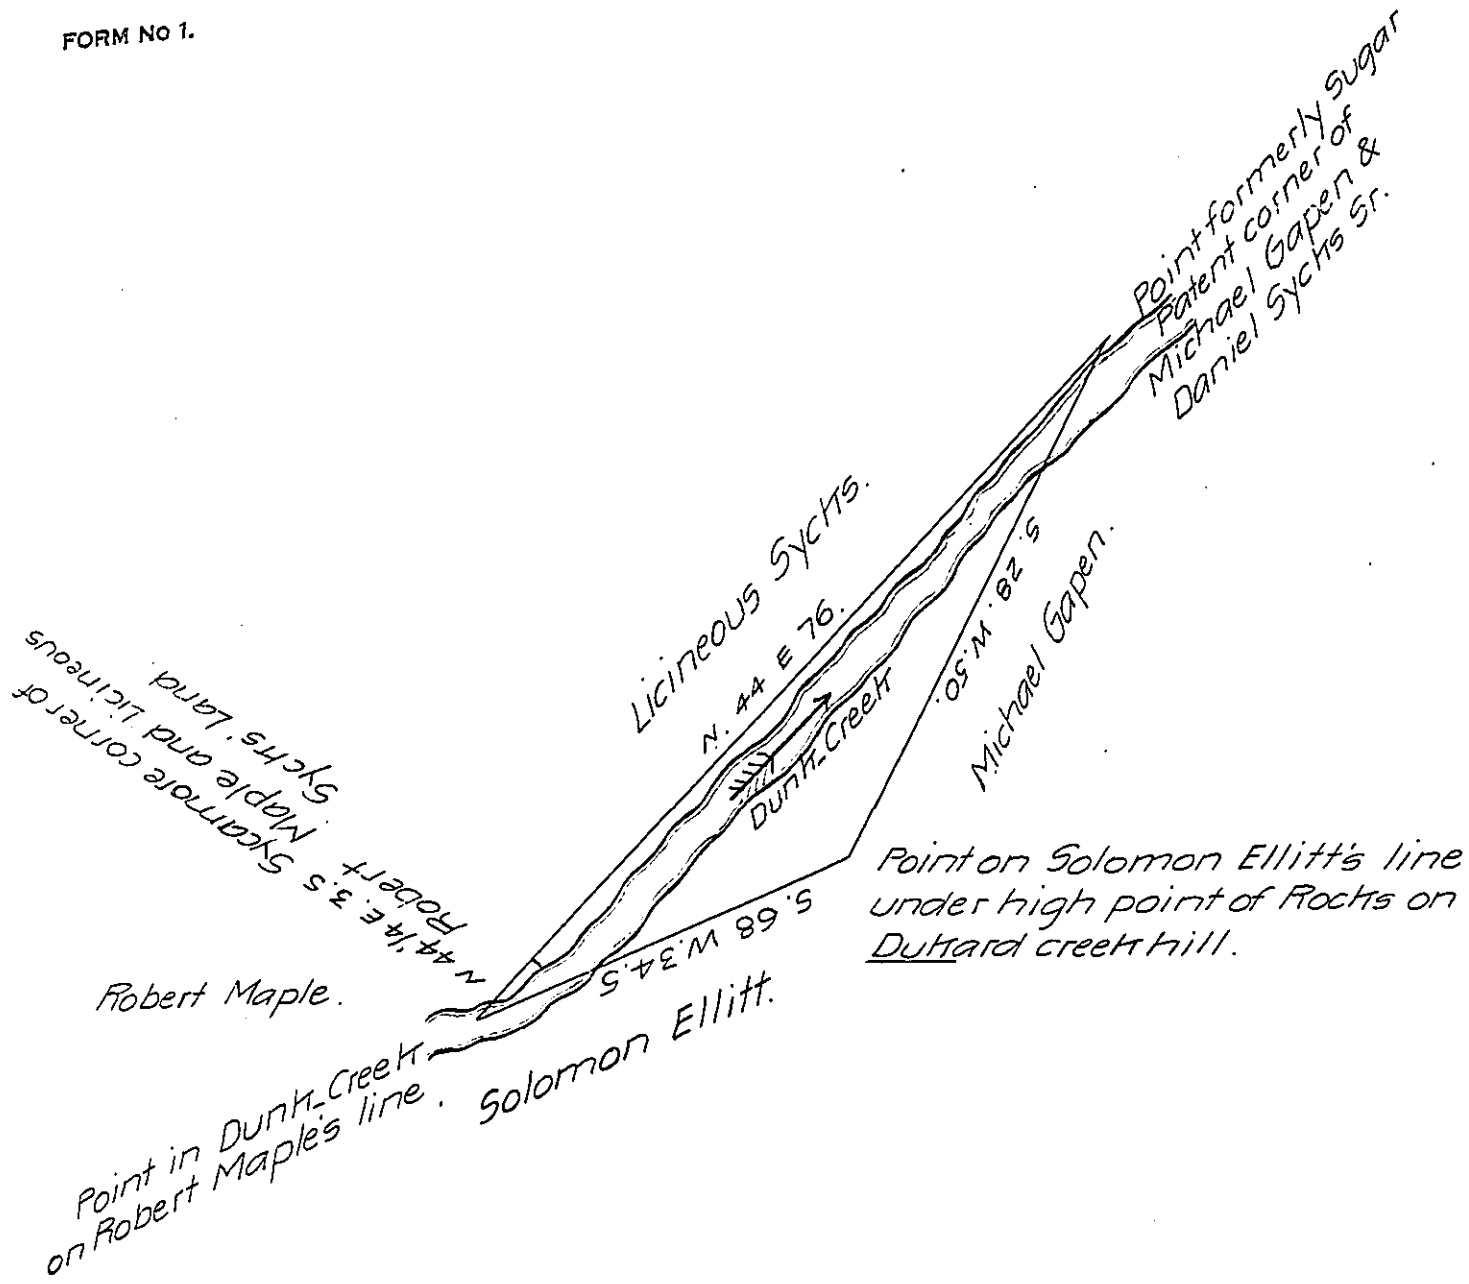 FORM No 1.
Point formerly Sugar
Patent corner of
Michael Gapen &
Daniel Sycks Sr.
Licineous Sycks.
N. 44 E 76.
S. 28. W. 50.
Michael Gapen.
Dunk-Creek
Sycamore corner of
Maple and Licineous
Sycks' Land
N 44 1/4 E. 3.5
Robert
S. 68 W. 34.5
Point on Solomon Ellitt's line
under high point of Rocks on
Dukard creek hill.
Robert Maple.
Solomon Ellitt.
Point in Dunk-Creek
on Robert Maple's line.